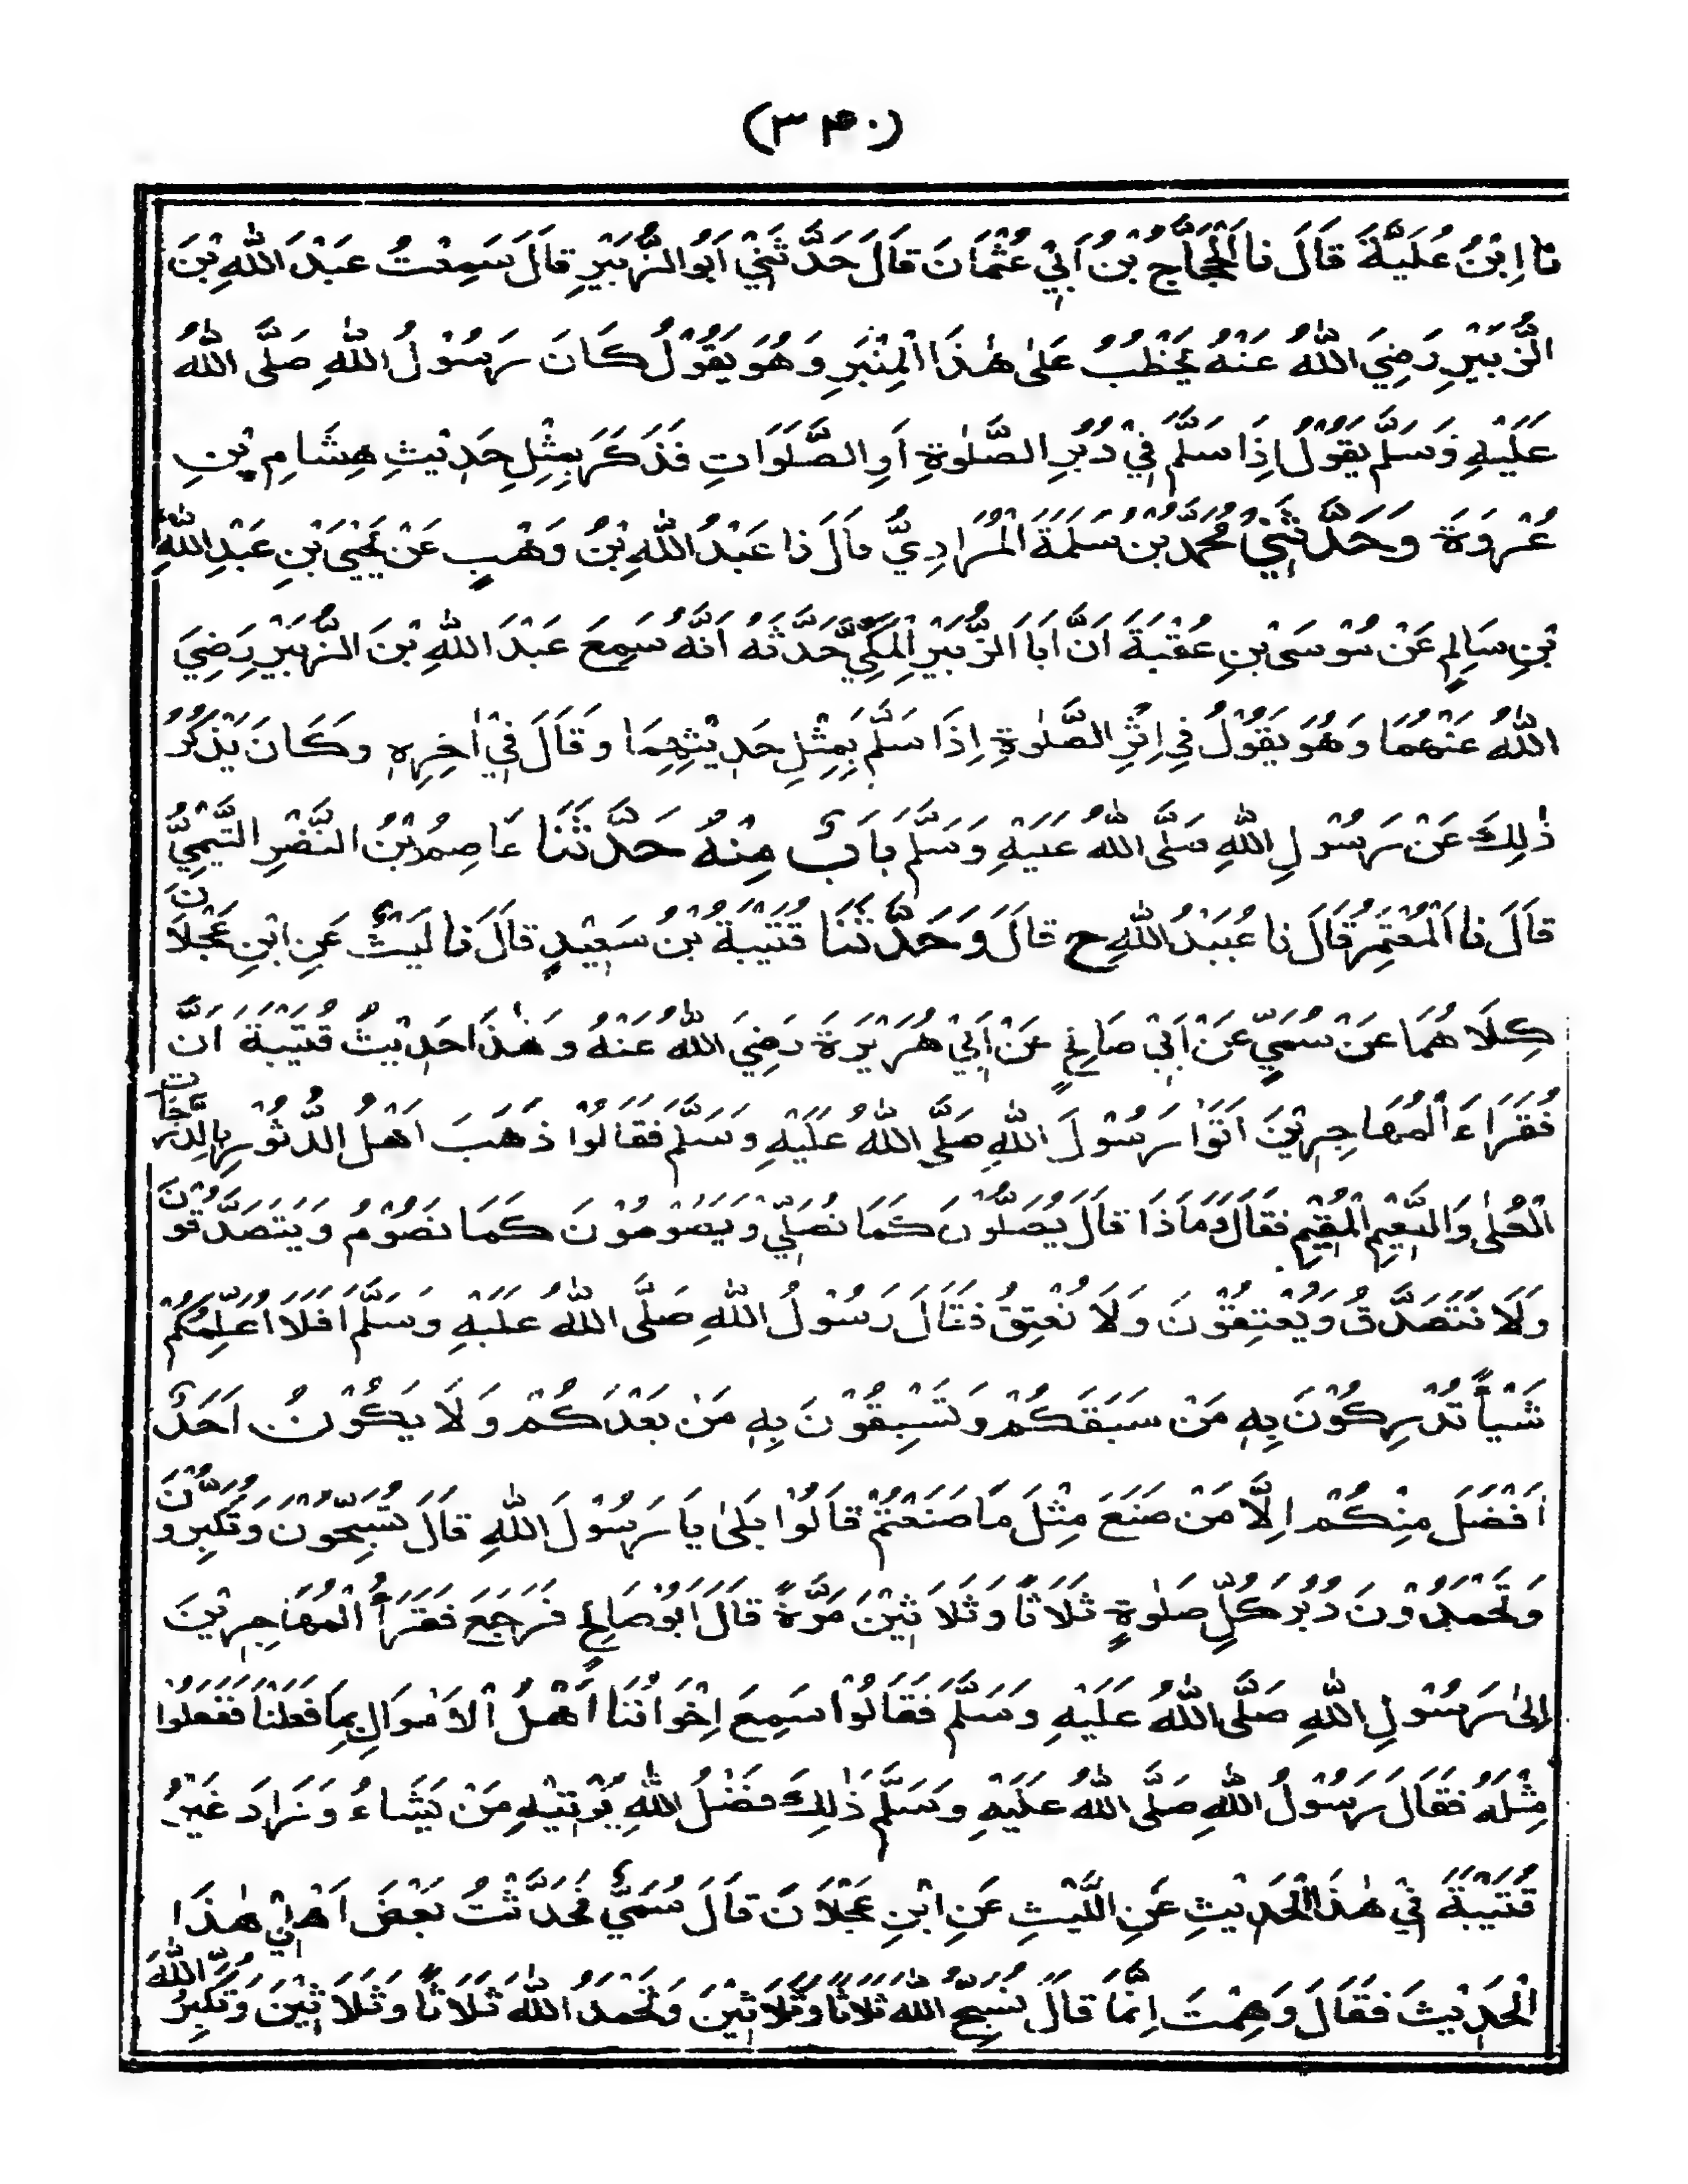 (۳۴۰)
نا اِبْنُ عُلَيَّةَ قَالَ نا الْحَجَّاجُ بْنُ اَبِيْ عُثْمَانَ قَالَ حَدَّثَنِيْ اَبُو الزُّبَيْرِ قَالَ سَمِعْتُ عَبْدَ اللّٰهِ بْنَ
الزُّبَيْرِ رَضِيَ اللّٰهُ عَنْهُ يَخْطُبُ عَلٰى هٰذَا الْمِنْبَرِ وَهُوَ يَقُوْلُ كَانَ رَسُوْلُ اللّٰهِ صَلَّى اللّٰهُ
عَلَيْهِ وَسَلَّمَ يَقُوْلُ اِذَا سَلَّمَ فِيْ دُبُرِ الصَّلٰوةِ اَوِ الصَّلَوَاتِ فَذَكَرَ بِمِثْلِ حَدِيْثِ هِشَامِ بْنِ
عُرْوَةَ وَحَدَّثَنِيْ مُحَمَّدُ بْنُ سَلَمَةَ الْمُرَادِيُّ قَالَ نا عَبْدُ اللّٰهِ بْنُ وَهْبٍ عَنْ يَحْيَى بْنِ عَبْدِ اللّٰهِ
بْنِ سَالِمٍ عَنْ مُوْسَى بْنِ عُقْبَةَ اَنَّ اَبَا الزُّبَيْرِ الْمَكِّيَّ حَدَّثَهُ اَنَّهُ سَمِعَ عَبْدَ اللّٰهِ بْنَ الزُّبَيْرِ رَضِيَ
اللّٰهُ عَنْهُمَا وَهُوَ يَقُوْلُ فِي اِثْرِ الصَّلٰوةِ اِذَا سَلَّمَ بِمِثْلِ حَدِيْثِهِمَا وَقَالَ فِيْ اٰخِرِهٖ وَكَانَ يَذْكُرُ
ذٰلِكَ عَنْ رَسُوْلِ اللّٰهِ صَلَّى اللّٰهُ عَلَيْهِ وَسَلَّمَ بَابٌ مِنْهُ حَدَّثَنَا عَاصِمُ بْنُ النَّضْرِ التَّيْمِيُّ
قَالَ نا الْمُعْتَمِرُ قَالَ نا عُبَيْدُ اللّٰهِ ح قَالَ وَحَدَّثَنَا قُتَيْبَةُ بْنُ سَعِيْدٍ قَالَ نا لَيْثٌ عَنِ ابْنِ عَجْلَانَ
كِلَاهُمَا عَنْ سُمَيٍّ عَنْ اَبِيْ صَالِحٍ عَنْ اَبِيْ هُرَيْرَةَ رَضِيَ اللّٰهُ عَنْهُ وَهٰذَا حَدِيْثُ قُتَيْبَةَ اَنَّ
فُقَرَاءَ الْمُهَاجِرِيْنَ اَتَوْا رَسُوْلَ اللّٰهِ صَلَّى اللّٰهُ عَلَيْهِ وَسَلَّمَ فَقَالُوْا ذَهَبَ اَهْلُ الدُّثُوْرِ بِالدَّرَجَاتِ
الْعُلٰى وَالنَّعِيْمِ الْمُقِيْمِ فَقَالَ وَمَا ذَا قَالَ يُصَلُّوْنَ كَمَا نُصَلِّيْ وَيَصُوْمُوْنَ كَمَا نَصُوْمُ وَيَتَصَدَّقُوْنَ
وَلَا نَتَصَدَّقُ وَيُعْتِقُوْنَ وَلَا نُعْتِقُ فَقَالَ رَسُوْلُ اللّٰهِ صَلَّى اللّٰهُ عَلَيْهِ وَسَلَّمَ اَفَلَا اُعَلِّمُكُمْ
شَيْأً تُدْرِكُوْنَ بِهٖ مَنْ سَبَقَكُمْ وَتَسْبِقُوْنَ بِهٖ مَنْ بَعْدَكُمْ وَلَا يَكُوْنُ اَحَدٌ
اَفْضَلَ مِنْكُمْ اِلَّا مَنْ صَنَعَ مِثْلَ مَا صَنَعْتُمْ قَالُوْا بَلٰى يَا رَسُوْلَ اللّٰهِ قَالَ تُسَبِّحُوْنَ وَتُكَبِّرُوْنَ
وَتَحْمَدُوْنَ دُبُرَ كُلِّ صَلٰوةٍ ثَلَاثًا وَثَلَاثِيْنَ مَرَّةً قَالَ اَبُوْ صَالِحٍ فَرَجَعَ فُقَرَاءُ الْمُهَاجِرِيْنَ
اِلٰى رَسُوْلِ اللّٰهِ صَلَّى اللّٰهُ عَلَيْهِ وَسَلَّمَ فَقَالُوْا سَمِعَ اِخْوَانُنَا اَهْلُ الْاَمْوَالِ بِمَا فَعَلْنَا فَفَعَلُوْا
مِثْلَهُ فَقَالَ رَسُوْلُ اللّٰهِ صَلَّى اللّٰهُ عَلَيْهِ وَسَلَّمَ ذٰلِكَ فَضْلُ اللّٰهِ يُؤْتِيْهِ مَنْ يَّشَاءُ وَزَادَ غَيْرُ
قُتَيْبَةَ فِيْ هٰذَا الْحَدِيْثِ عَنِ اللَّيْثِ عَنِ ابْنِ عَجْلَانَ قَالَ سُمَيٌّ فَحَدَّثْتُ بَعْضَ اَهْلِيْ هٰذَا
الْحَدِيْثَ فَقَالَ وَهِمْتَ اِنَّمَا قَالَ تُسَبِّحُ اللّٰهَ ثَلَاثًا وَثَلَاثِيْنَ وَتَحْمَدُ اللّٰهَ ثَلَاثًا وَثَلَاثِيْنَ وَتُكَبِّرُ اللّٰهَ